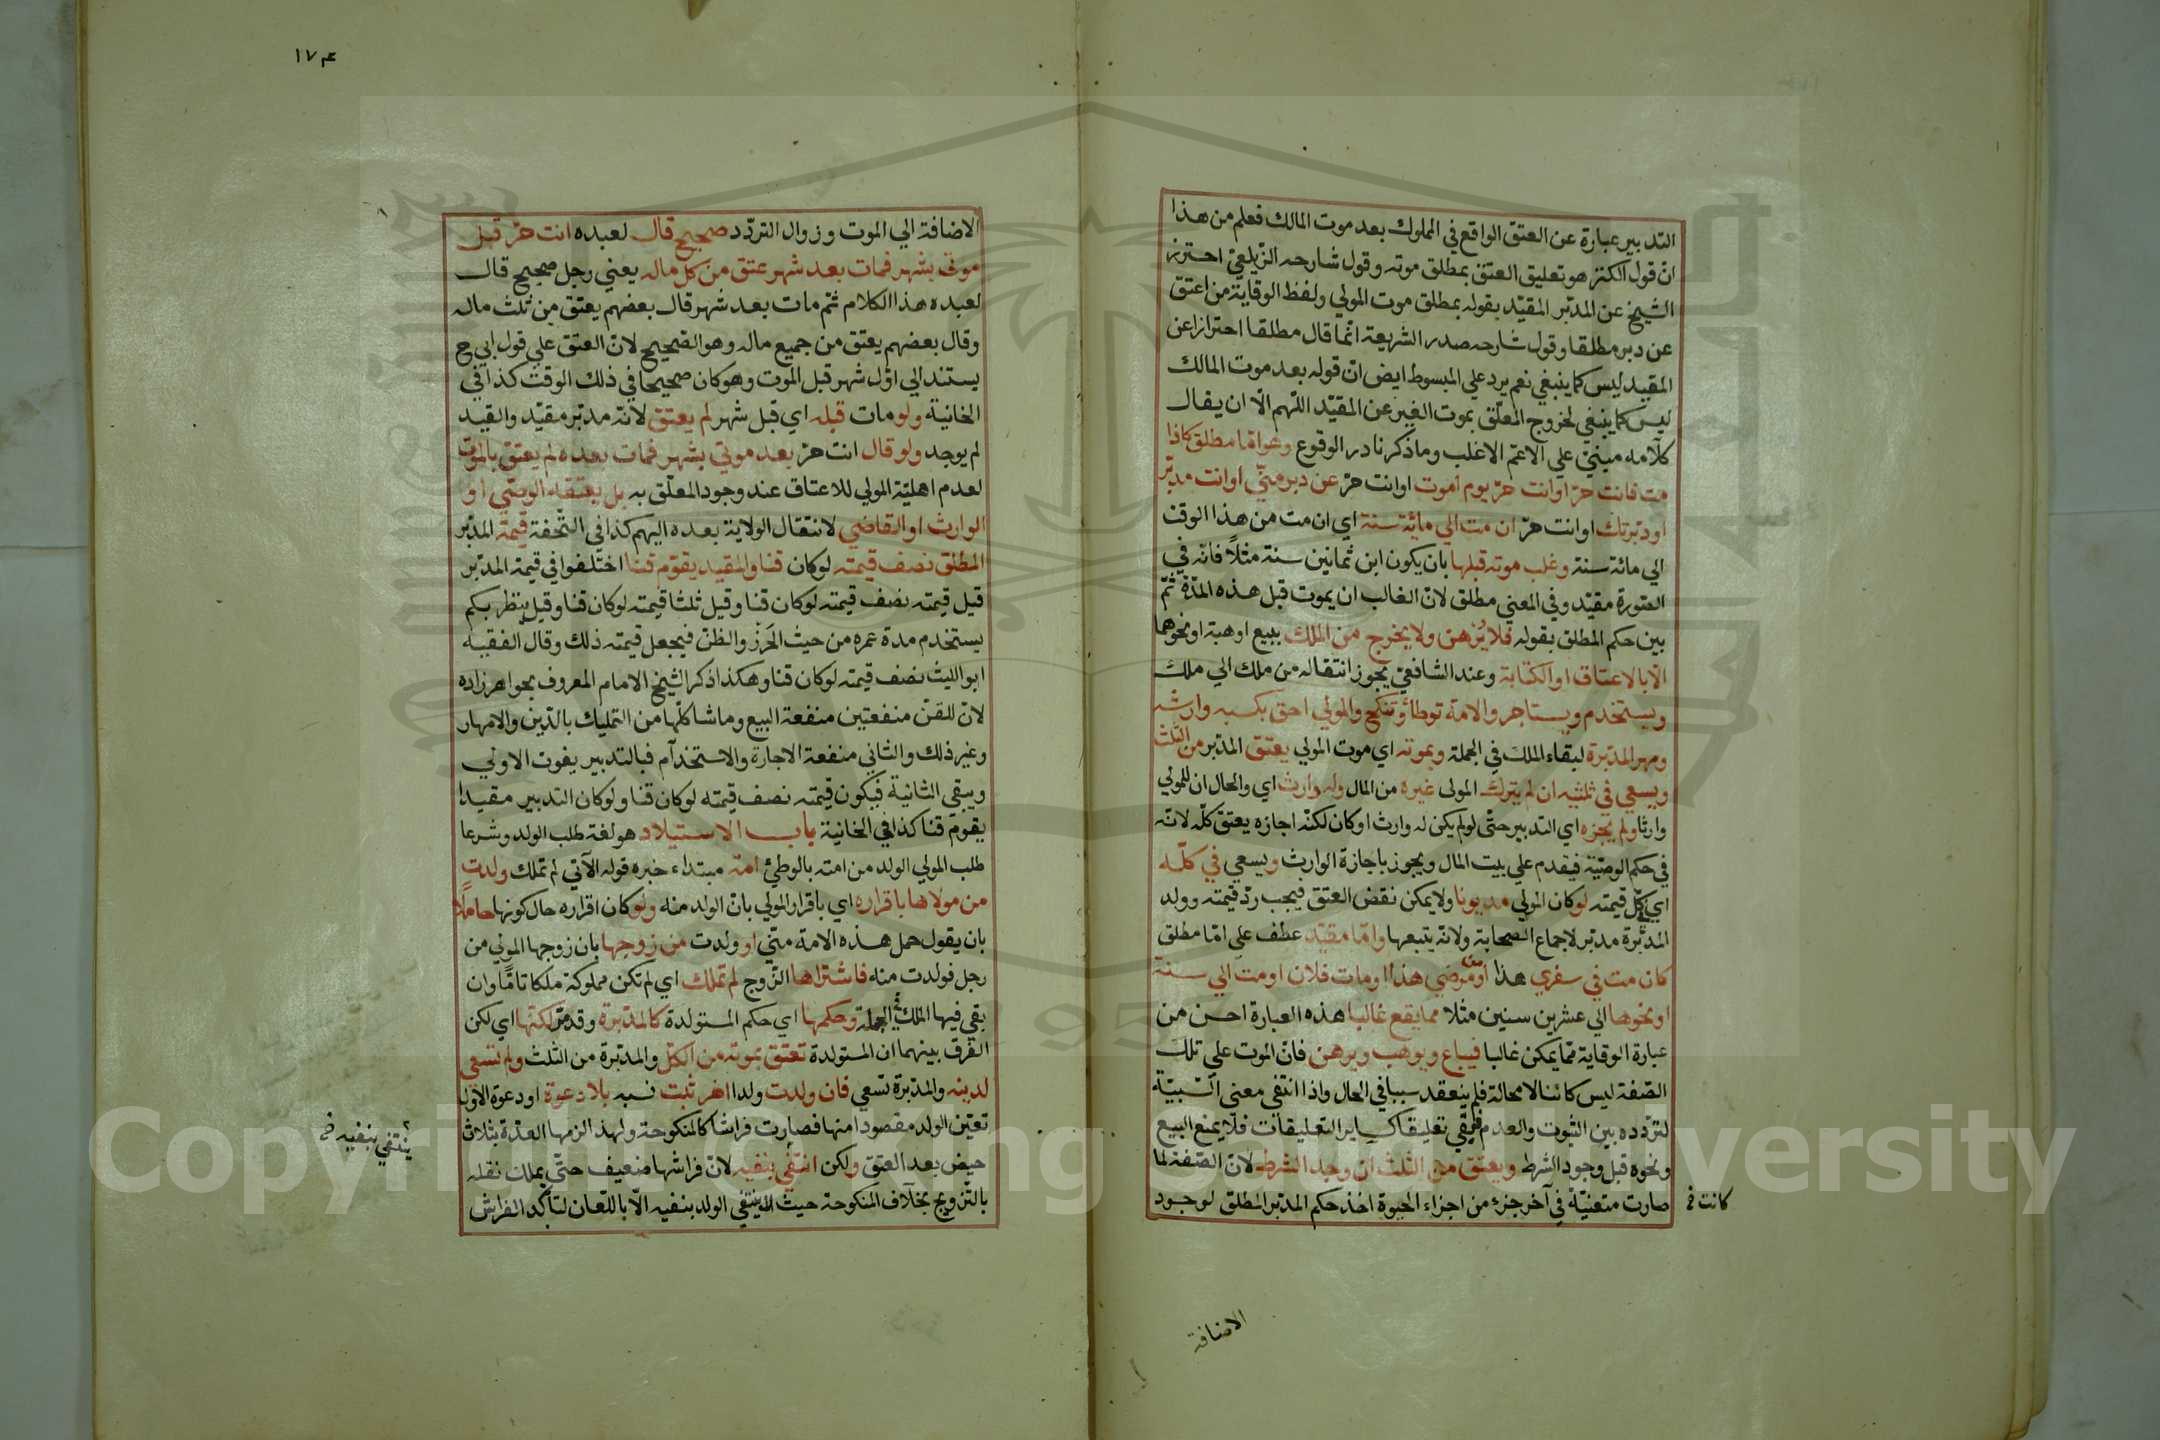 التدبير عبارة عن العتق الواقع في المملوك بعد موت المالك فعلم من هذا
ان قول الكنز هو تعليق العتق بمطلق موته وقول شارحه الزيلعي احترز
الشيخ عن المدبر المقيد بقوله بمطلق موت المولي ولفظ الوقاية من اعتق
عن دبر مطلقا وقول شارحه صدر الشريعة انما قال مطلقا احترازا عن
المقيد ليس كما ينبغي نعم يرد علي المبسوط ايض ان قوله بعد موت المالك
ليس كما ينبغي لخروج المعلق بموت الغير عن المقيد اللهم الا ان يقال
كلامه مبني علي الاعم الاغلب وما ذكر نادر الوقوع وهو اما مطلق كاذا
مت فانت حر او انت حر يوم اموت او انت حر عن دبر مني او انت مدبر
او دبرتك او انت حر ان مت الي مائة سنة اي ان مت من هذا الوقت
الي مائة سنة وغلب موته قبلها بان يكون ابن ثمانين سنة مثلا فانه في
الصورة مقيد وفي المعني مطلق لان الغالب ان يموت قبل هذه المدة ثم
بين حكم المطلق بقوله فلا يرهن ولا يخرج من الملك ببيع او هبة او نحوهما
الا بالاعتاق او الكتابة وعند الشافعي يجوز انتقاله من ملك الي ملك
ويستخدم ويستاجر والامة توطأ وتنكح والمولي احق بكسبه وارشه
ومهر المدبرة لبقاء الملك في الجملة وبموته اي موت المولي يعتق المدبر من الثلث
ويسعي في ثلثيه ان لم يترك المولى غيره من المال وله وارث اي والحال ان للمولي
وارثا ولم يجزه اي التدبير حتي لو لم يكن له وارث او كان لكنه اجازه يعتق كله لانه
في حكم الوصية فيقدم علي بيت المال ويجوز باجازة الوارث ويسعي في كله
اي كل قيمته لو كان المولي مديونا ولا يمكن نقض العتق فيجب رد قيمته وولد
المدبرة مدبر لاجماع الصحابة ولانه يتبعها واما مقيد عطف علي اما مطلق
كان مت في سفري هذا او مرضي هذا او مات فلان او مت الي سنة
او نحوها الي عشرين سنين مثلا مما يقع غالبا هذه العبارة احسن من
عبارة الوقاية مما يمكن غالبا فيباع ويوهب ويرهن فان الموت علي تلك
الصفة ليس كائنا لا محالة فلم ينعقد سببا في الحال واذا انتفي معني السببية
لتردده بين الثبوت والعدم بقي تعليقا كساير التعليقات فلا يمنع البيع
ونحوه قبل وجود الشرط ويعتق من الثلث ان وجد الشرط لان الصفة لما
صارت متعنية في آخر جزء من اجزاء الحيوة اخذ حكم المدبر المطلق لوجود
كانت
الاضافة
١٧٣
الاضافة الي الموت وزوال التردد صحيح قال لعبده انت حر قبل
موتي بشهر فمات بعد شهر عتق من كل ماله يعني رجل صحيح قال
لعبده هذا الكلام ثم مات بعد شهر قال بعضهم يعتق من ثلث ماله
وقال بعضهم يعتق من جميع ماله وهو الصحيح لان العتق علي قول ابي ح
يستند الي اول شهر قبل الموت وهو كان صحيحا في ذلك الوقت كذا في
الخانية ولو مات قبله اي قبل شهر لم يعتق لانه مدبر مقيد والقيد
لم يوجد ولو قال انت حر بعد موتي بشهر فمات بعده لم يعتق بالموت
لعدم اهلية المولي للاعتاق عند وجود المعلق به بل يعتقه الوصي او
الوارث او القاضي لانتقال الولاية بعده اليهم كذا في التحفة قيمة المدبر
المطلق نصف قيمته لو كان قنا والمقيد يقوم قنا اختلفوا في قيمة المدبر
قيل قيمته نصف قيمته لو كان قنا وقيل ثلثا قيمته لو كان قنا وقيل ينظر بكم
يستخدم مدة عمره من حيث الحرز والظن فيجعل قيمته ذلك وقال الفقيه
ابو الليث نصف قيمته لو كان قنا وهكذا ذكر الشيخ الامام المعروف بخواهر زاده
لان للقن منفعتين منفعة البيع وما شاكلها من التمليك بالدين والامهار
وغير ذلك والثاني منفعة الاجارة والاستخدام فبالتدبير يفوت الاولي
ويبقي الثانية فيكون قيمته نصف قيمته لو كان قنا ولو كان التدبير مقيدا
يقوم قنا كذا في الخانية باب الاستيلاد هو لغة طلب الولد وشرعا
طلب المولي الولد من امته بالوطئ امة مبتداء خبره قوله الآتي لم تملك ولدت
من مولاها باقراره اي باقرار المولي بان الولد منه ولو كان اقراره حال كونها حاملا
بان يقول حمل هذه الامة مني او ولدت من زوجها بان زوجها المولي من
رجل فولدت منه فاشتراها الزوج لم تملك اي لم تكن مملوكة ملكا تاما وان
بقي فيها الملك في الجملة وحكمها اي حكم المستولدة كالمدبرة وقد مر لكنها اي لكن
الفرق بينهما ان المستولدة تعتق بموته من الكل والمدبرة من الثلث ولم تسعي
لدينه والمدبرة تسعي فان ولدت ولدا اخر ثبت نسبه بلا دعوة او دعوة الاول
تعين الولد مقصودا منها فصارت فراشا كالمنكوحة ولهذا لزمها العدة بثلاث
حيض بعد العتق ولكن انتفي بنفيه لان فراشها ضعيف حتي يملك نقله
بالتزويج بخلاف المنكوحة حيث لا ينتفي الولد بنفيه الا باللعان لتأكد الفراش
ينتفي بنفيه